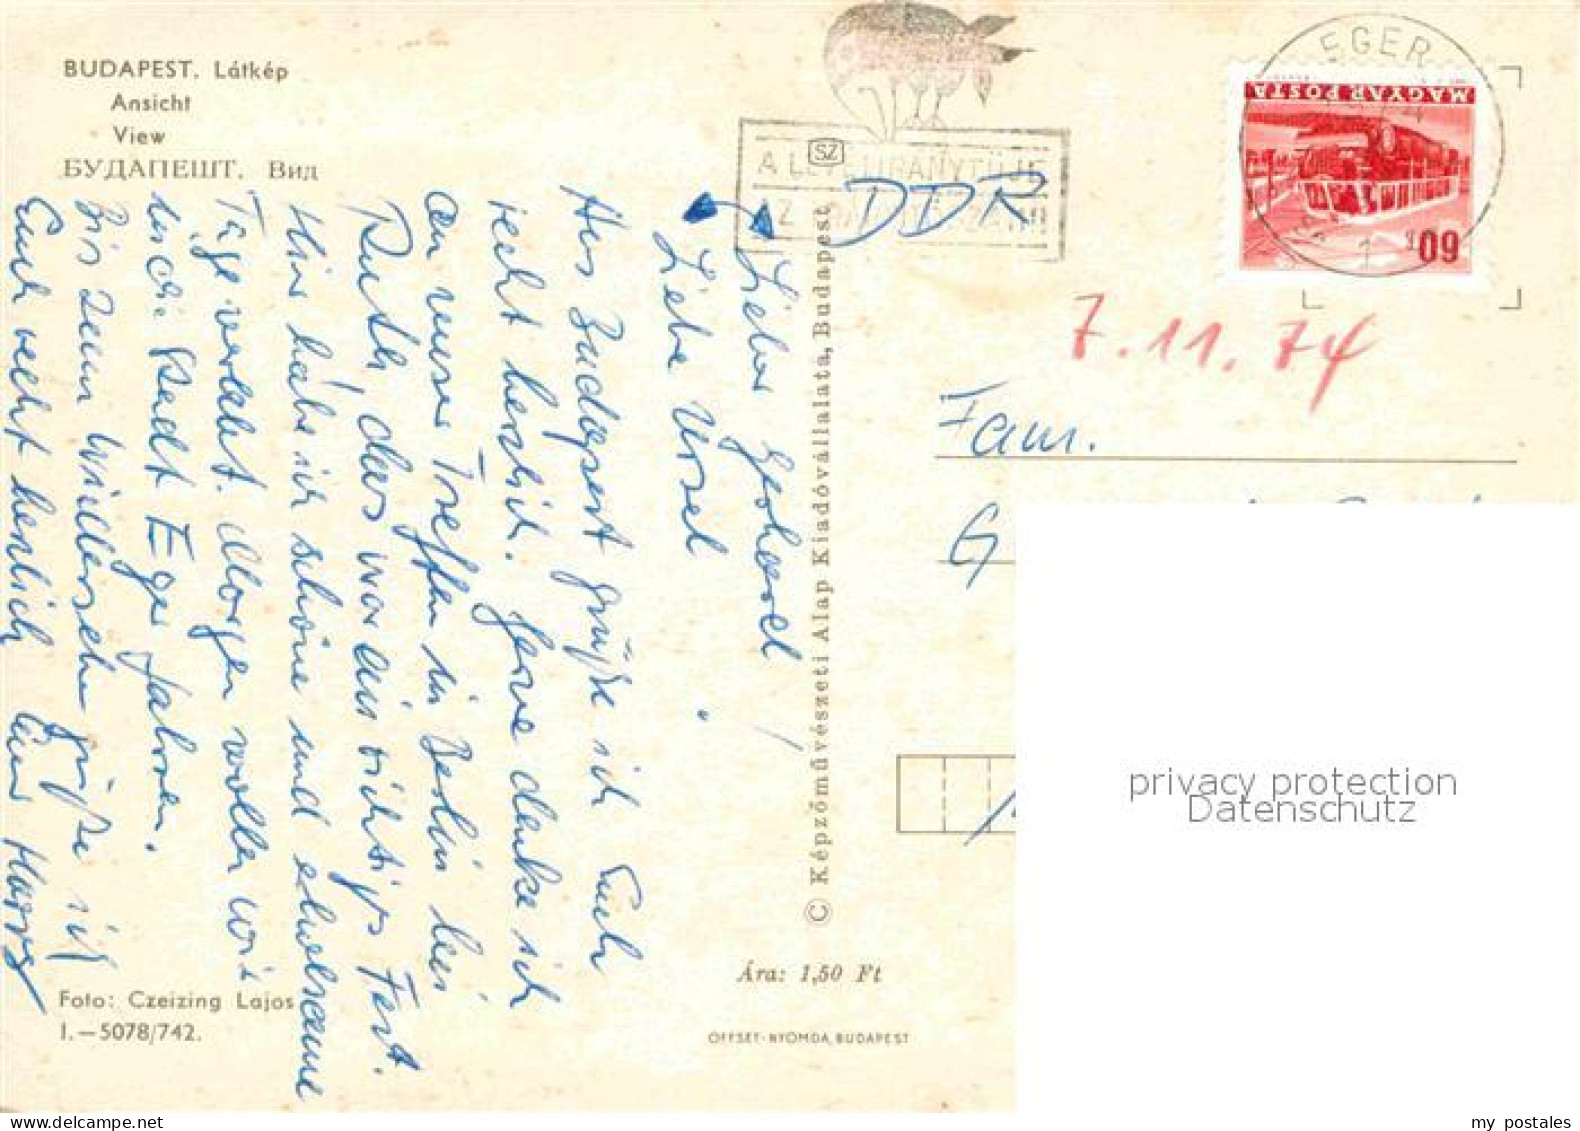 BUDAPEST. Látkép
Ansicht
View
БУДАПЕШТ. Вид
EGER
MAGYAR POSTA
60f
SZ
A LEVÉL IRÁNYTŰJE
DDR
7.11.74
Fam.
G
Lieber Gerhard!
Liebe Ursel.
Aus Budapest grüße ich Euch
recht herzlich. Gerne denke ich
an unser Treffen in Berlin bei
Ruth, das war ein richtiges Fest.
Hier habe ich schöne und erholsame
Tage verlebt. Morgen wollen wir
in die Stadt Eger fahren.
Bis zum Wiedersehn grüße ich
Euch recht herzlich Eure
© Képzőművészeti Alap Kiadóvállalata, Budapest
Ára: 1,50 Ft
Foto: Czeizing Lajos
I.—5078/742.
OFFSET-NYOMDA, BUDAPEST
privacy protection
Datenschutz
my postales